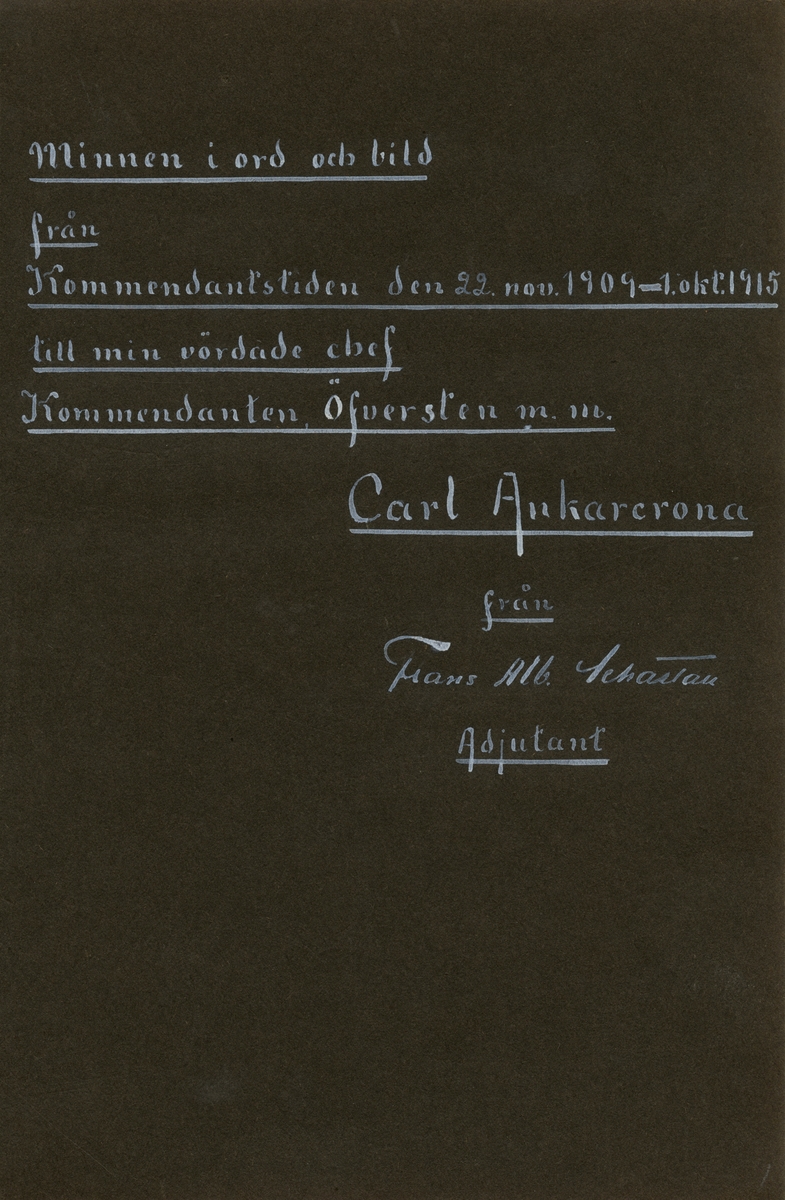 Minnen i ord och bild
från
Kommendantstiden den 22. nov. 1909–1. okt. 1915
till min vördade chef
Kommendanten, Öfversten m. m.
Carl Ankarcrona
från
Frans Alb.
Adjutant